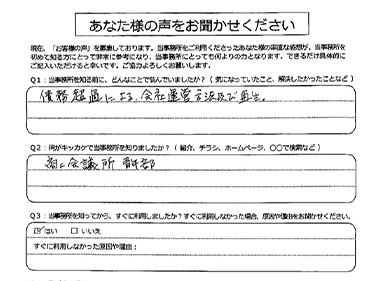 あなた様の声をお聞かせください
現在、「お客様の声」を募集しております。当事務所をご利用くださったあなた様の率直な感想が、当事務所を
初めて知る方にとって非常に参考になり、当事務所にとっても何よりの力となります。できるだけ具体的に
ご記入いただけると幸いです。ご協力よろしくお願いします。
Q1:当事務所を知る前に、どんなことで悩んでいましたか?(気になっていたこと、解決したかったことなど)
債務超過による、会社運営方法及び再生。
Q2:何がキッカケで当事務所を知りましたか?(紹介、チラシ、ホームページ、〇〇で検索など)
商工会議所 青年部
Q3:当事務所を知ってから、すぐに利用しましたか?すぐに利用しなかった場合、原因や理由をお聞かせください。
☑はい □いいえ
すぐに利用しなかった原因や理由: